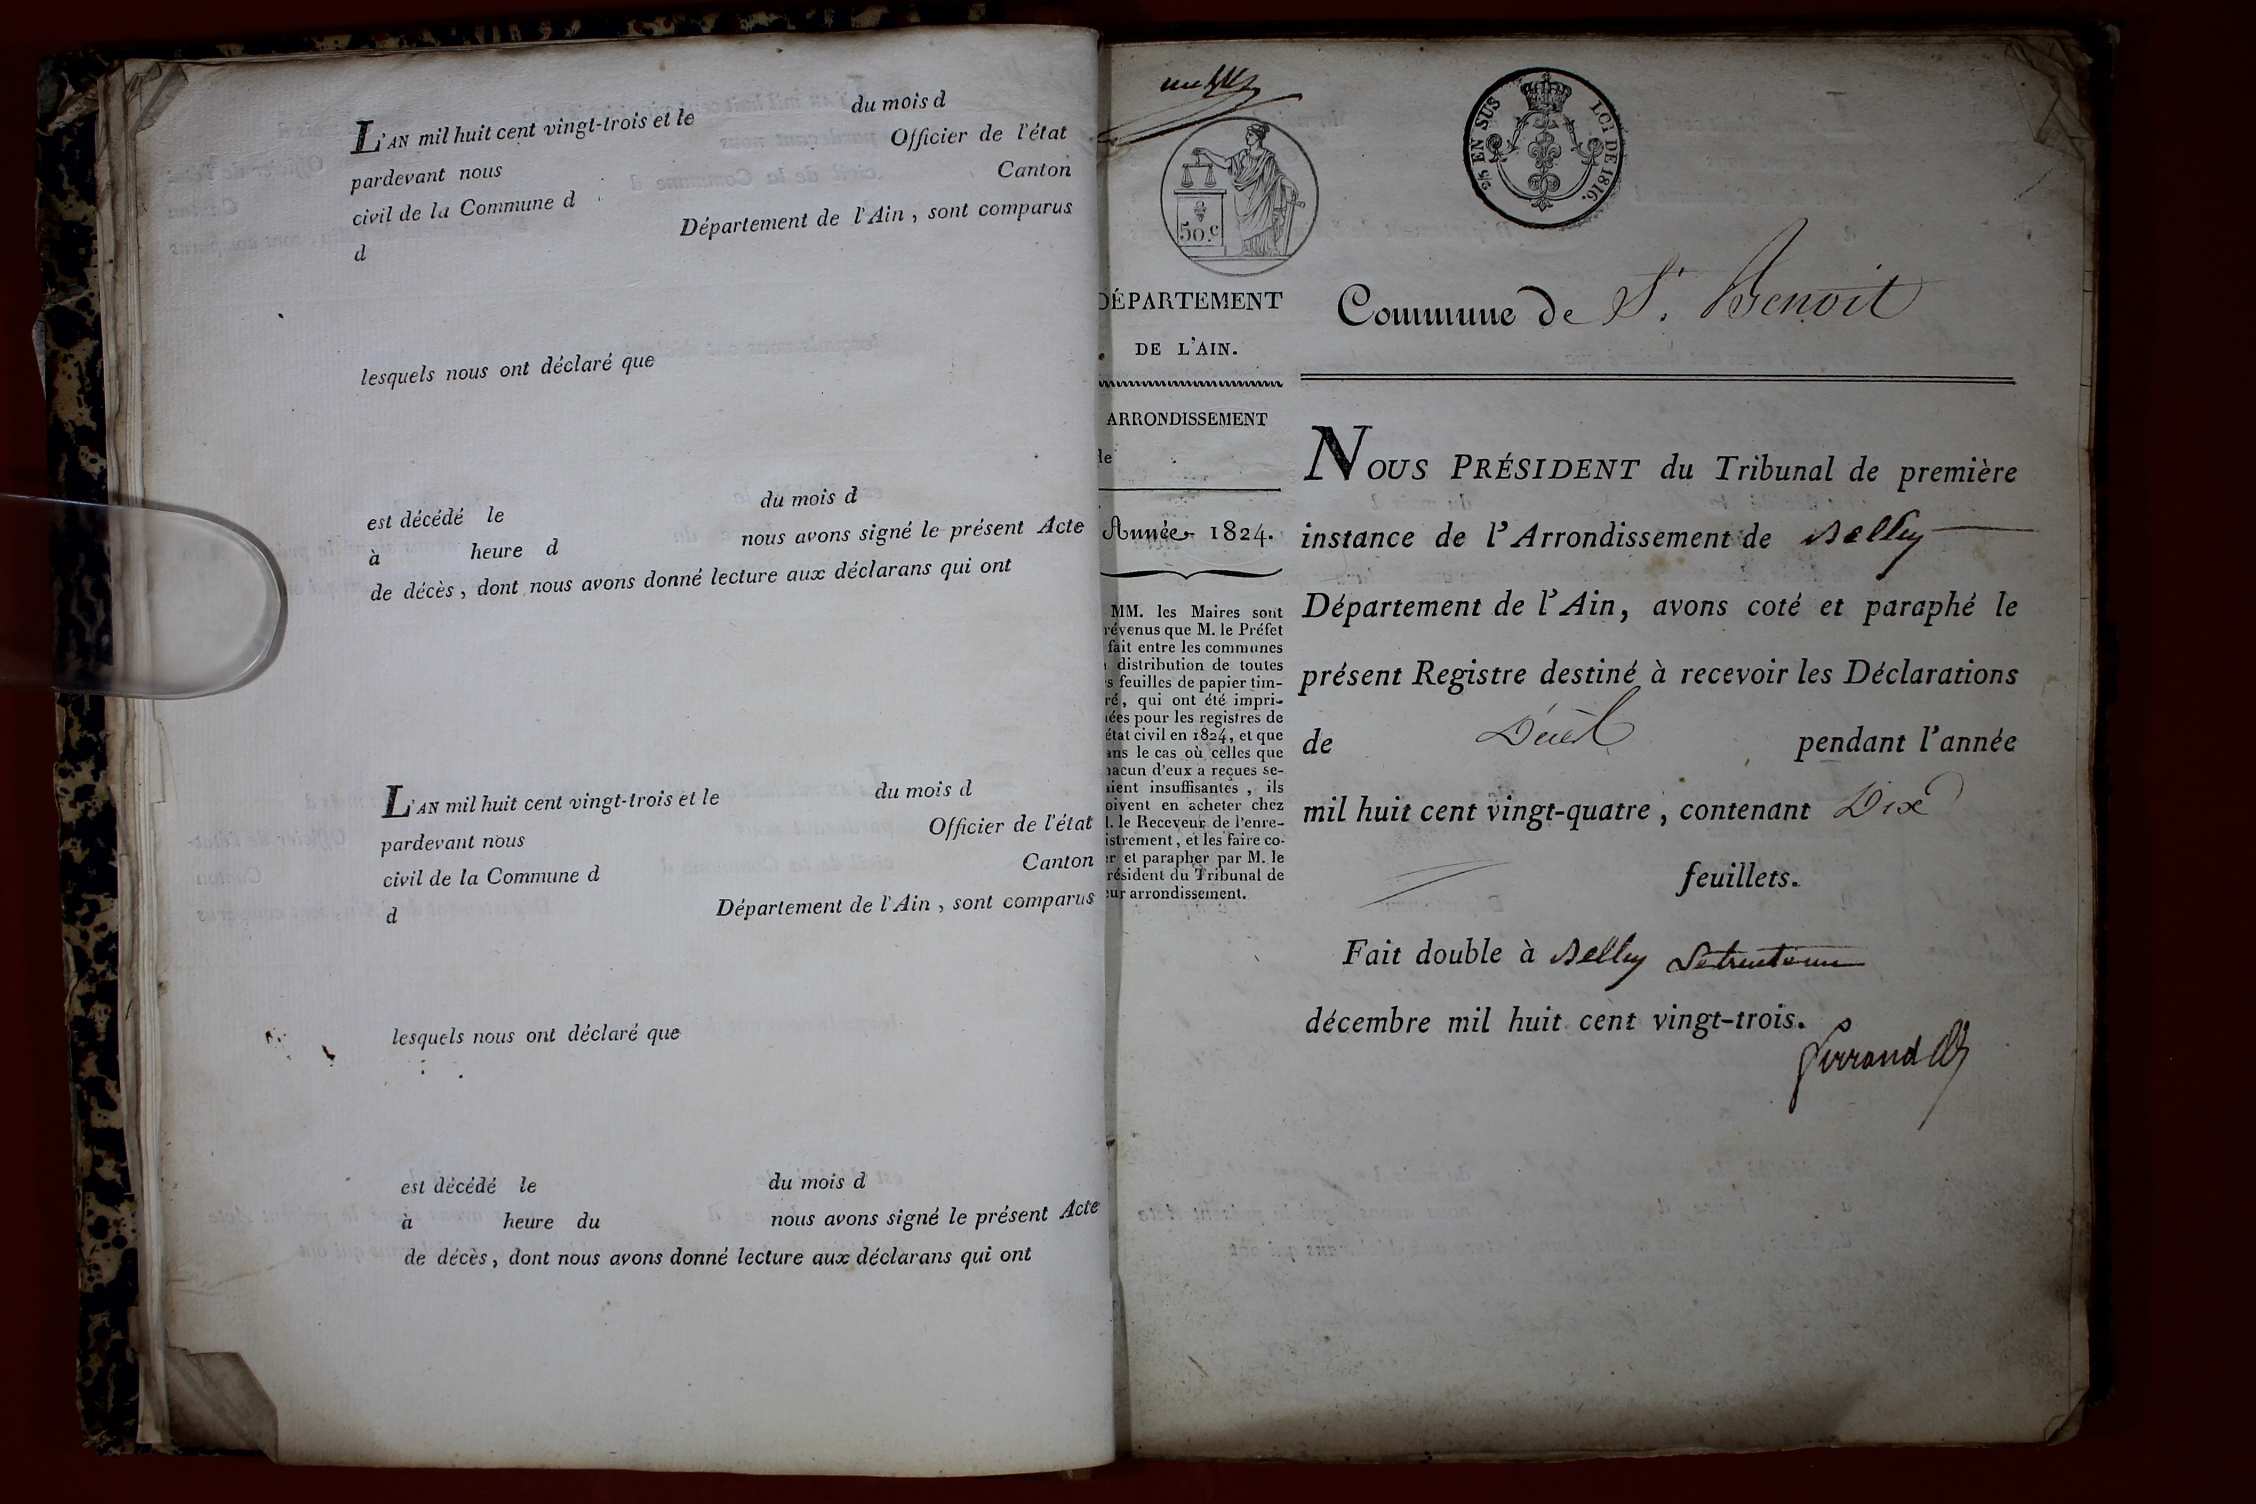 L'AN mil huit cent vingt-trois et le du mois d
pardevant nous Officier de l'état
civil de la Commune d Canton
d Département de l'Ain, sont comparus
lesquels nous ont déclaré que
est décédé le du mois d
à heure d nous avons signé le présent Acte
de décès, dont nous avons donné lecture aux déclarans qui ont
L'AN mil huit cent vingt-trois et le du mois d
pardevant nous Officier de l'état
civil de la Commune d Canton
d Département de l'Ain, sont comparus
lesquels nous ont déclaré que
est décédé le du mois d
à heure du nous avons signé le présent Acte
de décès, dont nous avons donné lecture aux déclarans qui ont
50.c
2/5 EN SUS LOI DE 1816.
DÉPARTEMENT
DE L'AIN.
ARRONDISSEMENT
de
Année 1824.
MM. les Maires sont
révenus que M. le Préfet
fait entre les communes
distribution de toutes
s feuilles de papier tim-
ré, qui ont été impri-
ées pour les registres de
état civil en 1824, et que
ans le cas où celles que
hacun d'eux a reçues se-
aient insuffisantes, ils
oivent en acheter chez
l. le Receveur de l'enre-
istrement, et les faire co-
er et parapher par M. le
résident du Tribunal de
eur arrondissement.
Commune de St. Benoit
NOUS PRÉSIDENT du Tribunal de première
instance de l'Arrondissement de Belley
Département de l'Ain, avons coté et paraphé le
présent Registre destiné à recevoir les Déclarations
de Décès pendant l'année
mil huit cent vingt-quatre, contenant Dix
feuillets.
Fait double à Belley Le trente un
décembre mil huit cent vingt-trois.